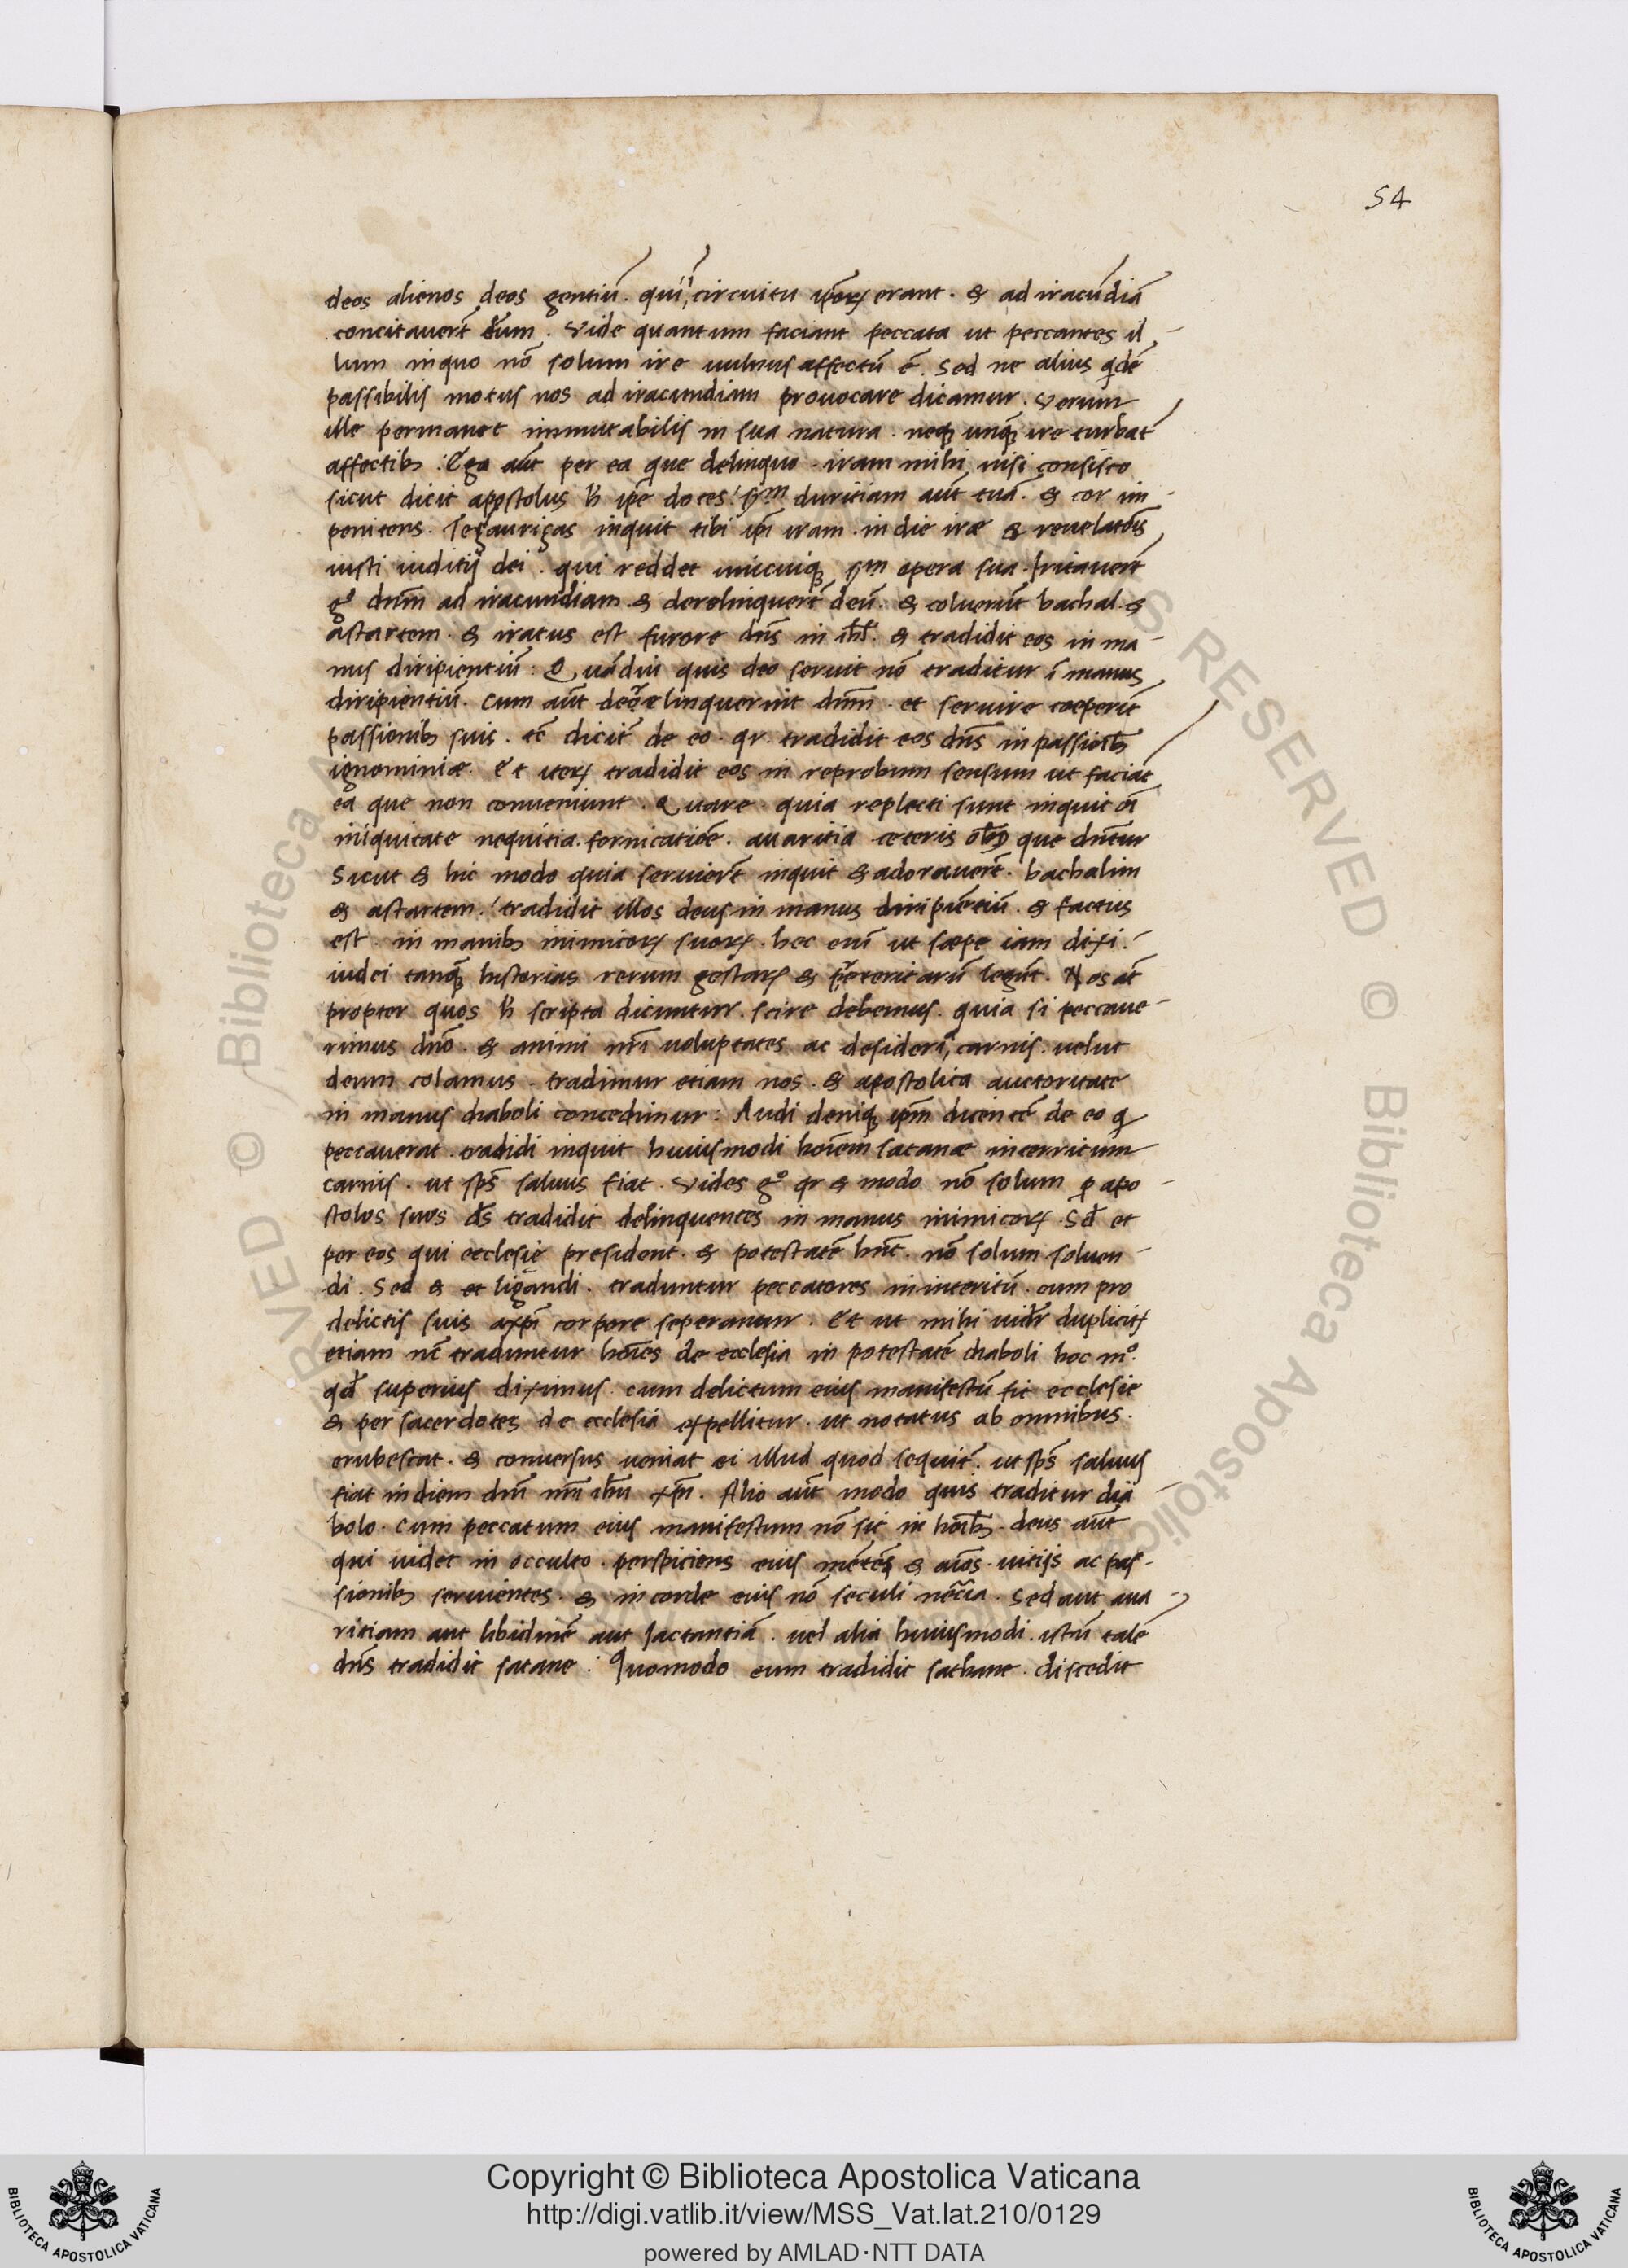 54
deos alienos deos gentiũ. qui ĩ circuitu ip̃oꝝ erant. & ad iracũdiã
concitauert̃ dñum. Vide quantum faciant peccata ut peccantes il-
lum inquo nõ solum ire uulnus affectũ ẽ. Sed ne alius qdẽ
passibilis motus nos ad iracundiam prouocare dicamur. Verum
ille permanet immutabilis in sua natura. neqꝫ unqꝫ ire turbat̃
affectibꝫ. Ego aũt per ea que delinquo. iram mihi nisi consisto
sicut dicit apostolus h̃ ip̃e doces. sm̃ duritiam aũt tuã. & cor im-
penitens. Tegaurigas inquit tibi ip̃i iram. in die iræ & reuelatõis
iusti iuditij dei. qui reddet unicuiqꝫ sm̃ opera sua. Irritauert̃
gº dnm̃ ad iracundiam. & derelinquert̃ deũ. & coluerunt bachal. &
astartem. & iratus est furore dns̃ in ihl̃. & tradidit eos in ma-
nus diripientiũ: Quãdiu quis deo seruit nõ traditur ĩ manus
diripientiũ. Cum aũt derelinquerint dnm̃. et seruire coeperit̃
passionibꝫ suis. tc̃ dicit̃ de eo. qr. tradidit eos dns̃ in passioib̃
ignominiæ. Et iteꝝ tradidit eos in reprobum sensum ut faciãt
ea que non conueniunt. Quare. quia replecti sunt inquit oĩ
iniquitate nequitia. fornicatiõe. auaritia ceteris que dnt̃ur
Sicut & hic modo quia seruiert̃ inquit & adorauert̃. bachalim
& astartem. tradidit illos deus in manus diripiẽtiũ. & factus
est. in manibꝫ inimicoꝝ suoꝝ. hec enĩ ut sæpe iam dixi.
iudei tanqꝫ historias rerum gestaꝝ & p̃teritarũ legũt. Nos at̃
propter quos h̃ scripta dicuntur. scire debemus. quia si peccaue-
rimus dnõ. & animi nr̃i uoluptates ac desideria carnis. uelut
deum colamus. tradimur etiam nos. & apostolica auctoritate
in manus diaboli concedimur: Audi deniqꝫ ip̃m dicentẽ de eo q
peccauerat. tradidi inquit huiusmodi hoĩem satanæ in
carnis. ut sps̃ saluus fiat. Vides gº qr & modo nõ solum ꝑ apo-
stolos suos ds̃ tradidit delinquentes in manus inimicoꝝ. Sd̃ et
per eos qui ecclesię president. & potestatẽ hñt. nõ solum soluen-
di. Sed & et ligandi. traduntur peccatores in interitũ. cum pro
delictis suis axp̃i corpore seperantur. Et ut mihi uidr̃ duplicit̃
etiam nc̃ traduntur hoĩes de ecclesia in potestatẽ diaboli hoc mº.
qd̃ superius diximus. cum delictum eius manifestũ fit ecclesie
& per sacerdotes de ecclesia expellitur. ut notatus ab omnibus.
erubescat. & conuersus ueniat ei illud quod sequit̃. ut sps̃ saluus
fiat in diem dnĩ nr̃i ihũ xp̃i. Alio aũt modo quis traditur dia-
bolo. Cum peccatum eius manifestum nõ sit in hoĩbꝫ. deus aũt
qui uidet in occulto. perspiciens eius mẽtes & aĩos. uitijs ac pas-
sionibꝫ seruientes. & in corde eius nõ seculi. Sed aut aua
ritiam aut libidinẽ aut Jactantiã. uel alia huiusmodi. istũ talẽ
dns̃ tradidit satane. Quomodo eum tradidit sathane. discedit
Copyright © Biblioteca Apostolica Vaticana
http://digi.vatlib.it/view/MSS_Vat.lat.210/0129
powered by AMLAD·NTT DATA